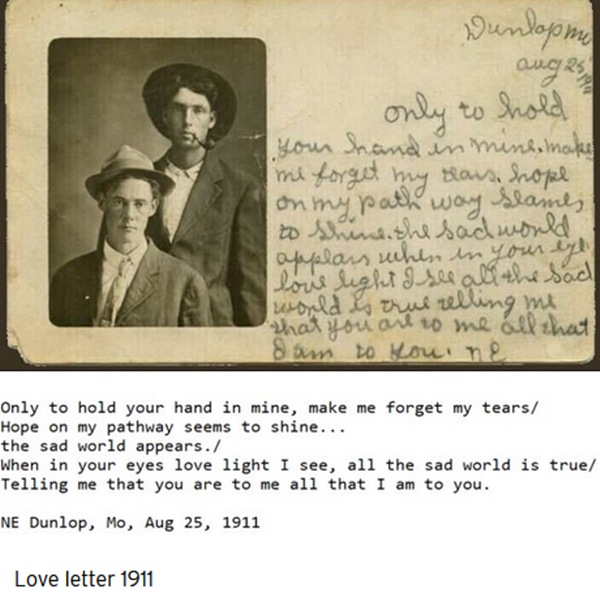 Dunlap mo
aug 25, 1911
only to hold
your hand in mine. make
me forget my tears. hope
on my path way seames
to shine. the sad world
appears when in your eye
love light I see all the sad
world is true telling me
that you are to me all that
I am to you. n E
Only to hold your hand in mine, make me forget my tears/
Hope on my pathway seems to shine...
the sad world appears./
When in your eyes love light I see, all the sad world is true/
Telling me that you are to me all that I am to you.
NE Dunlop, Mo, Aug 25, 1911
Love letter 1911